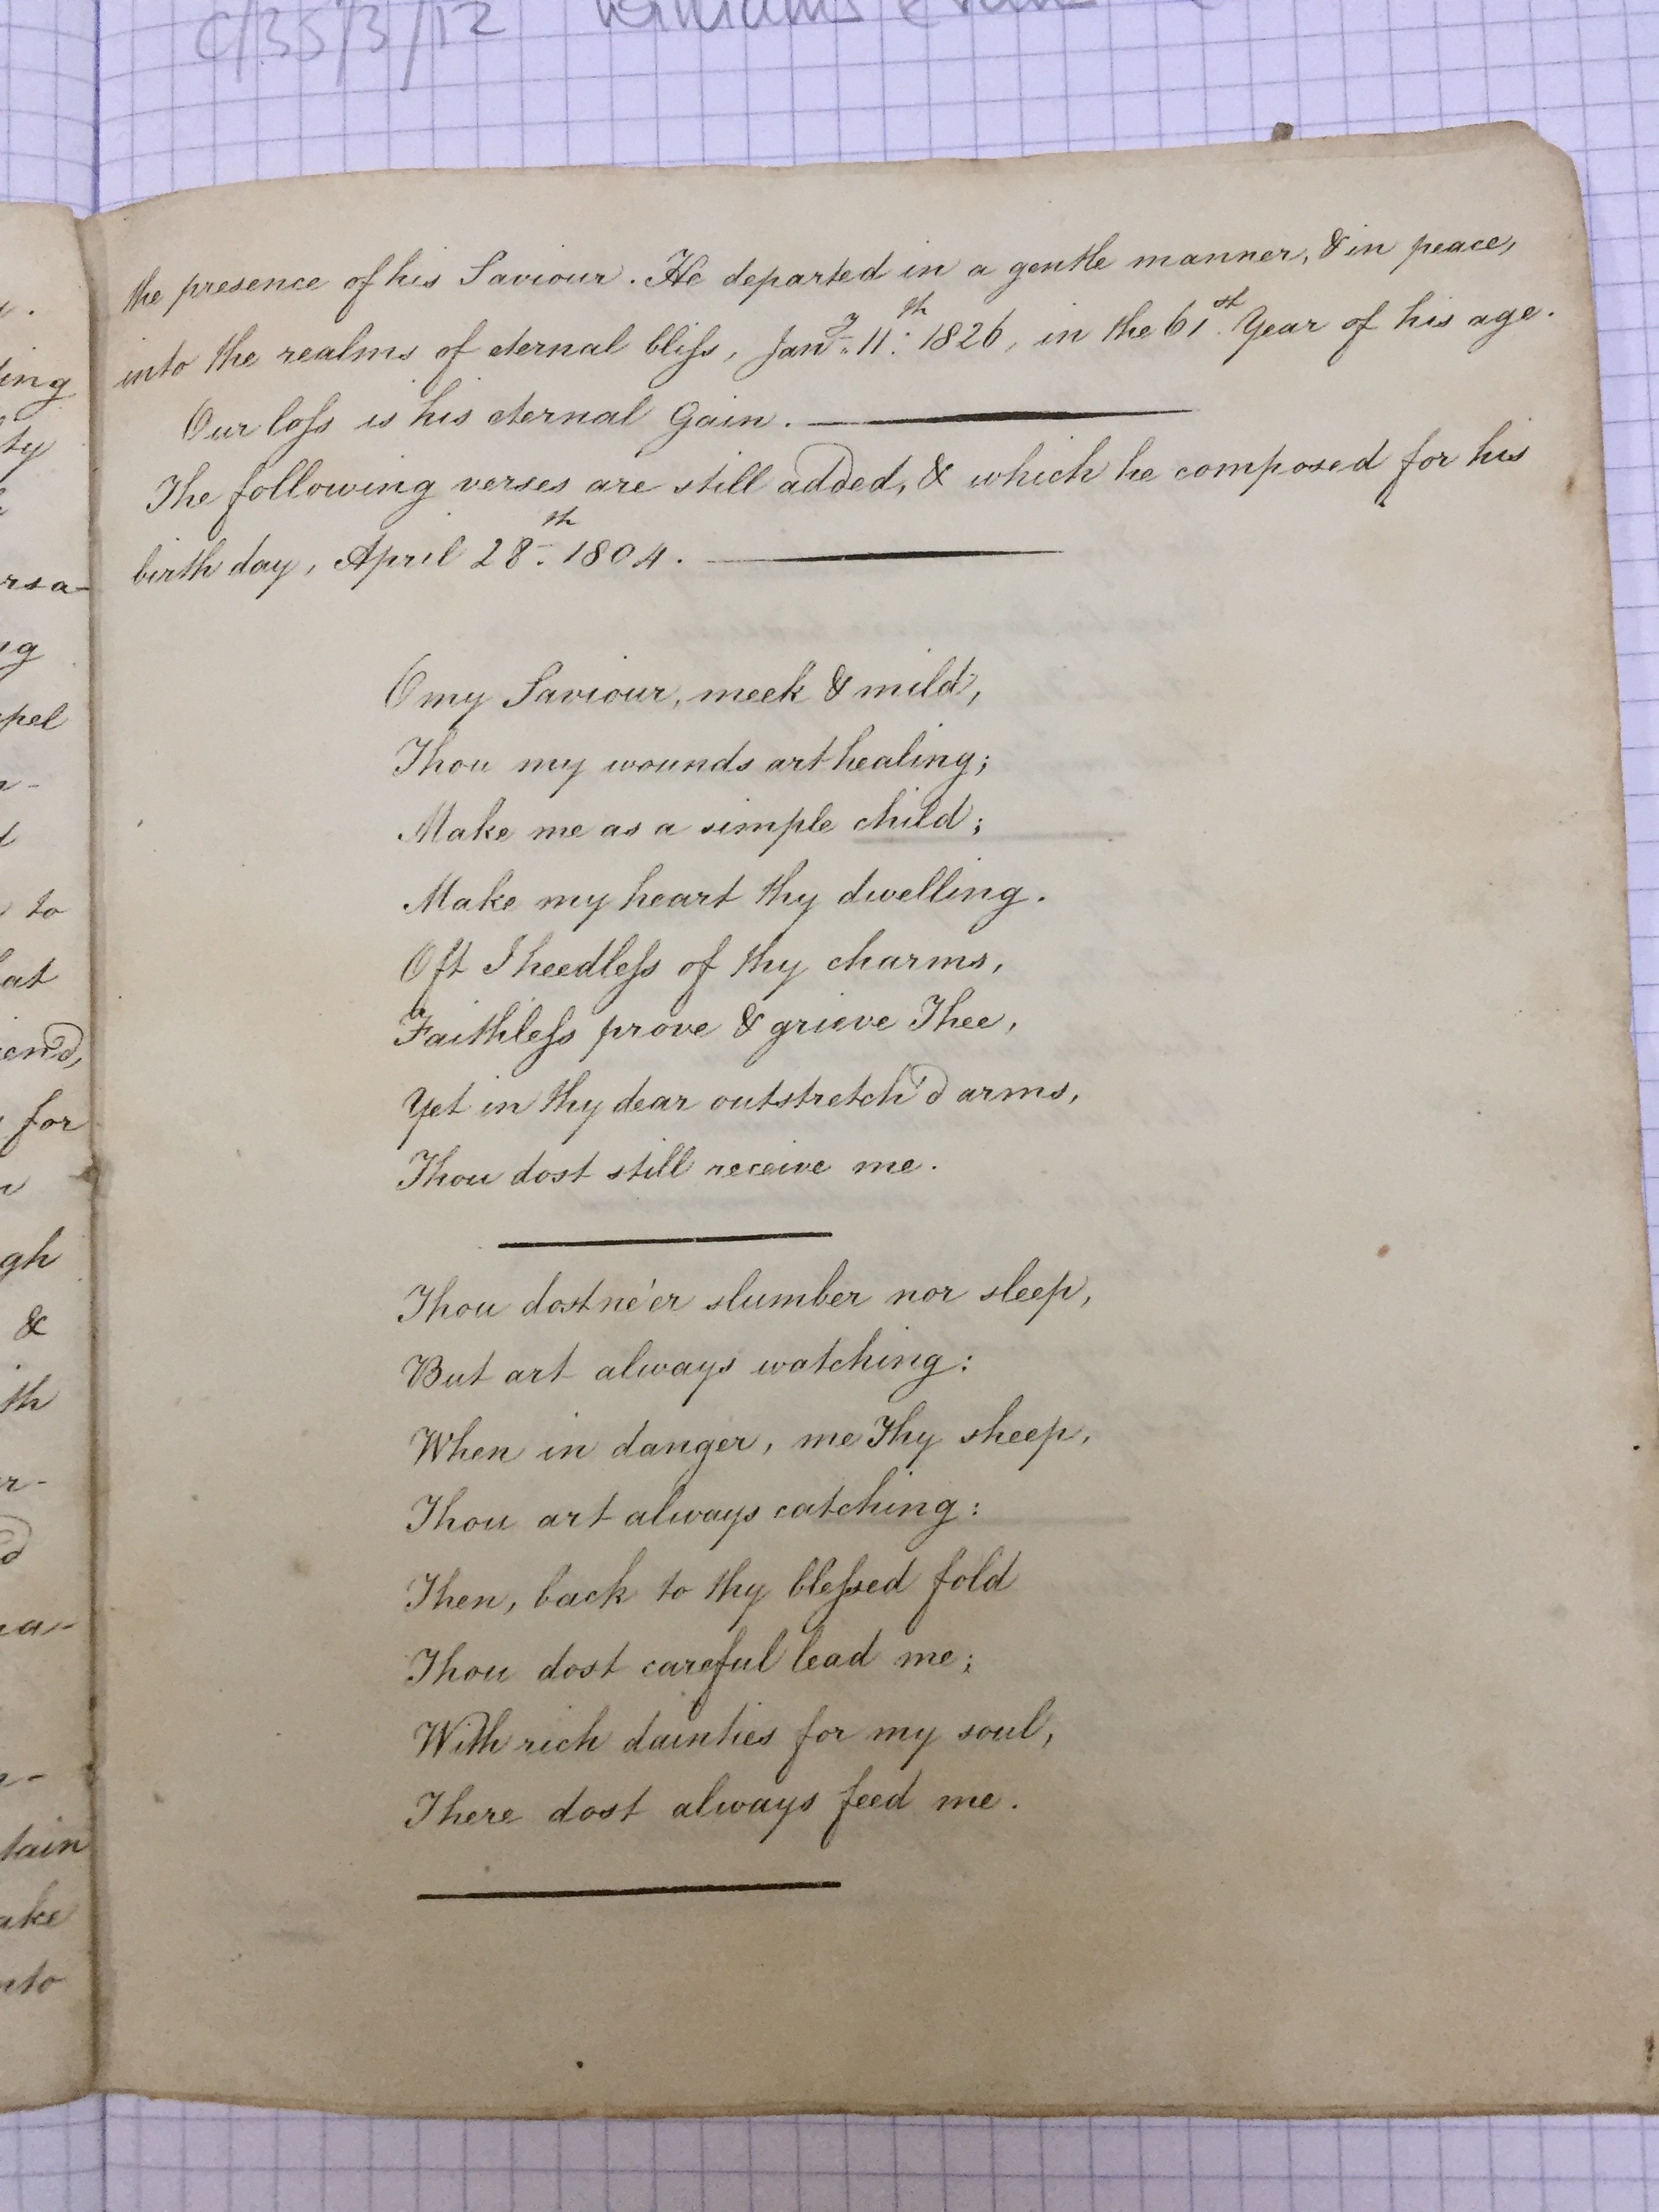 C/35/3/12
the presence of his Saviour. He departed in a gentle manner, & in peace,
into the realms of eternal bliſs, Janʸ. 11ᵗʰ. 1826, in the 61ˢᵗ. Year of his age.
Our loſs is his eternal Gain.
The following verses are still added, & which he composed for his
birth day, April 28ᵗʰ. 1804.
O my Saviour, meek & mild,
Thou my wounds art healing;
Make me as a simple child;
Make my heart thy dwelling.
Oft I heedleſs of thy charms,
Faithleſs prove & grieve Thee,
Yet in thy dear outstretch'd arms,
Thou dost still receive me.
Thou dost ne'er slumber nor sleep,
But art always watching:
When in danger, me Thy sheep,
Thou art always catching:
Then, back to thy bleſsed fold
Thou dost careful lead me;
With rich dainties for my soul,
There dost always feed me.
ing
ty
rsa-
ng
pel
to
at
end,
for
gh
&
th
r-
d
na-
tain
ake
nto